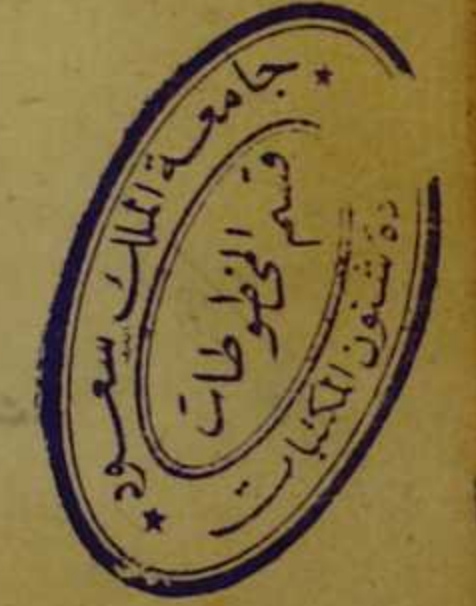 جامعة الملك سعود
قسم
المخطوطات
دة شئون المكتبات